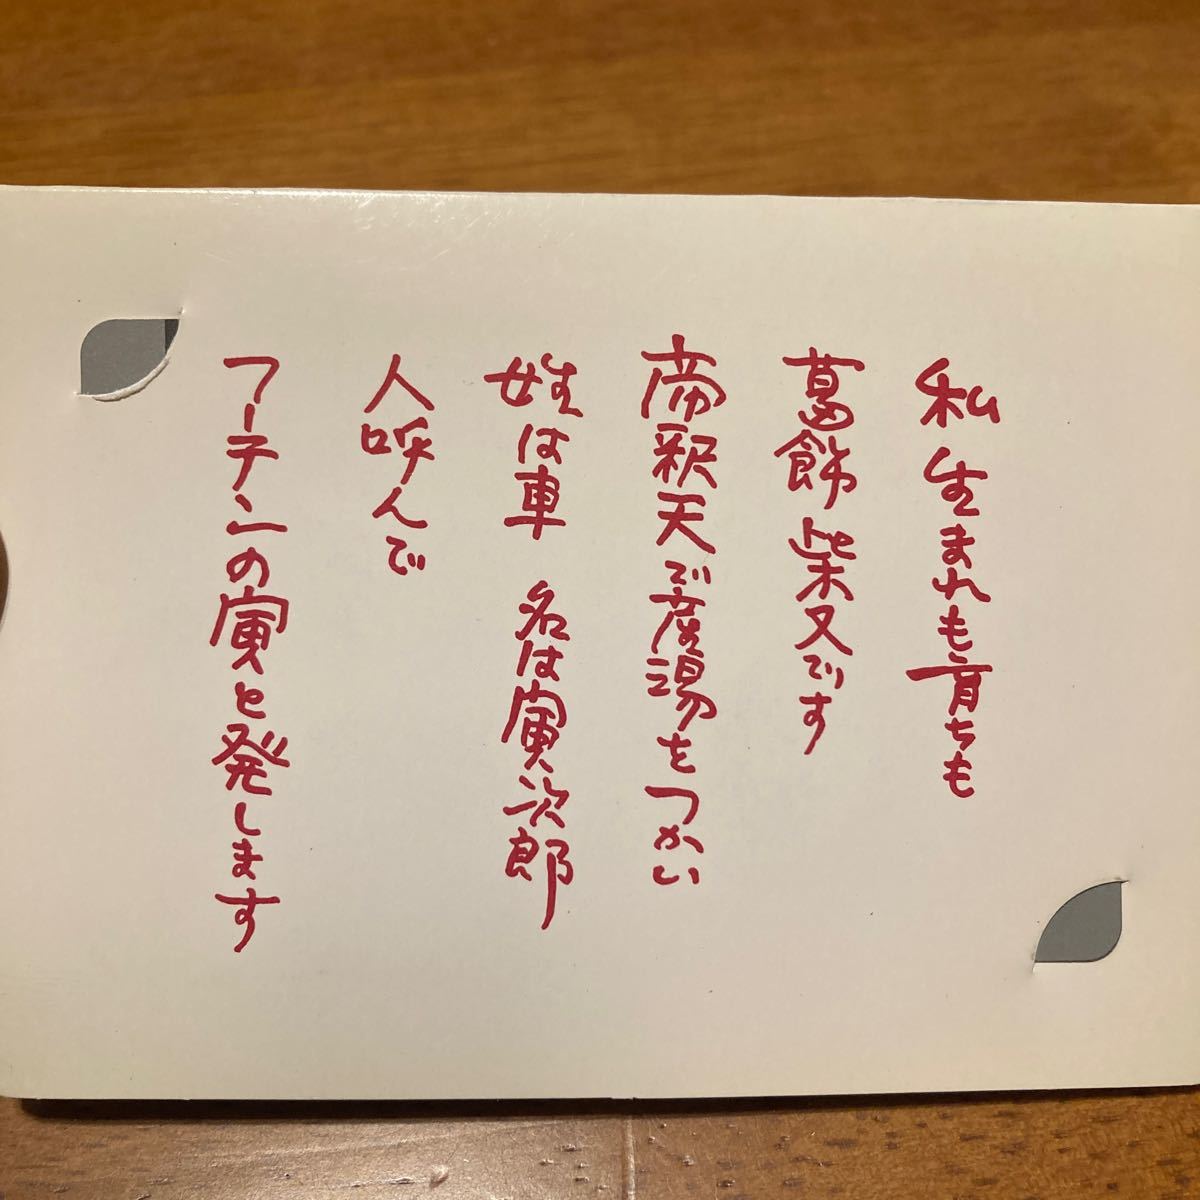 私 生まれも育ちも
葛飾柴又です
帝釈天で産湯をつかい
姓は車 名は寅次郎
人呼んで
フーテンの寅と発します